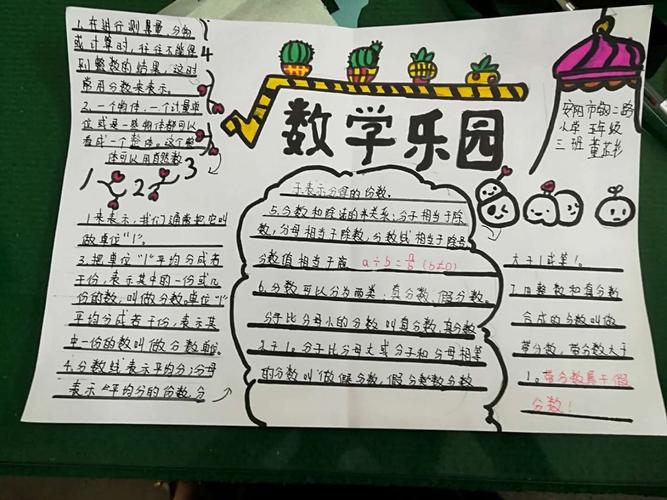 数学乐园
安阳市钢二路
小学 五年级
三班 董芷彤
1.在进行测量、分物
或计算时,往往不能得
到整数的结果,这时
常用分数来表示。
2.一个物体、一个计量单
位或是一些物体都可以
看成一个整体。这个整
体可以用自然数
1 2 3 4
1来表示,我们通常把它叫
做单位"1"。
3.把单位"1"平均分成若
干份,表示其中的一份或几
份的数,叫做分数。单位"1"
平均分成若干份,表示其
中一份的数叫做分数单位。
4.分数线表示平均分;分母
表示"平均分的份数,分
子表示分得的份数。
5.分数和除法的关系:分子相当于除
数,分母相当于除数,分数线相当于除号
分数值相当于商 a÷b=a/b (b≠0)
6.分数可以分为两类:真分数,假分数。
分子比分母小的分数叫真分数,真分数
之于1。分子比分母大或分子和分母相等
的分数叫做假分数,假分数分数
大于1或等1。
7.由整数和真分数
合成的分数叫做
带分数,带分数大于
1。带分数属于假
分数!